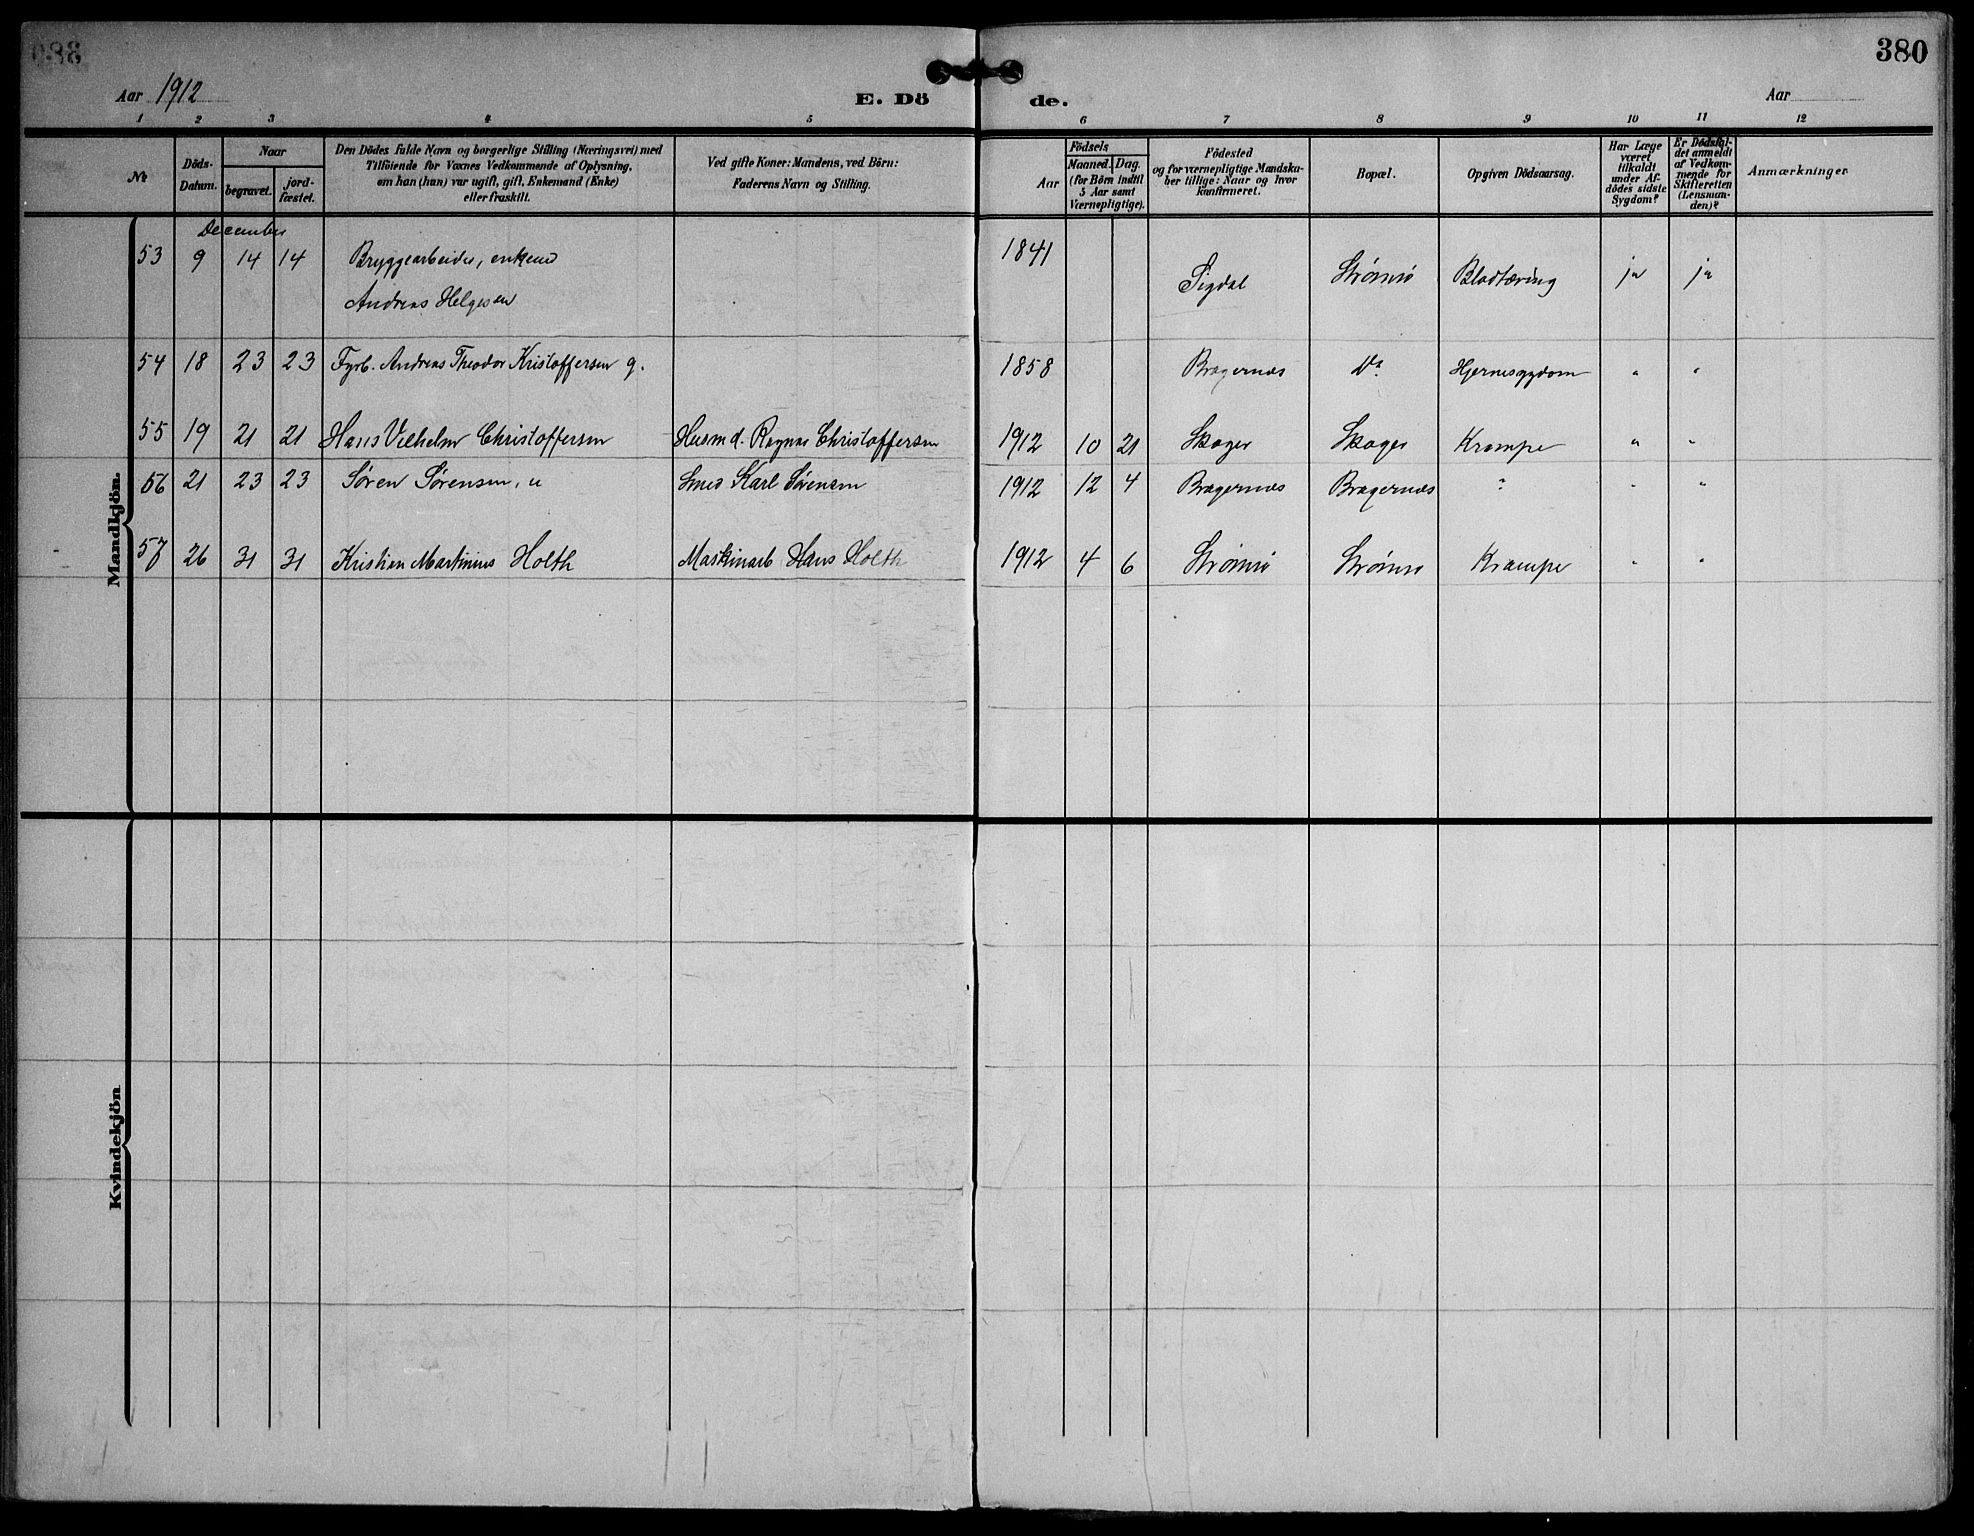 380
Aar 1912
E. Dö de.
Aar
1 2 3 4 5 6 7 8 9 10 11 12
Nr.
Döds-Datum.
Naar
begravet.
jord-fæstet.
Den Dödes fulde Navn og borgerlige Stilling (Næringsvei) med
Tilföiende for Voxnes Vedkommende af Oplysning,
om han (hun) var ugift, gift, Enkemand (Enke)
eller fraskilt.
Ved gifte Koner: Mandens, ved Börn:
Faderens Navn og Stilling.
Födsels
Aar
Maaned. Dag.
(for Börn indtil
5 Aar samt
Værnepligtige).
Födested
og for værnepligtige Mandska-
ber tillige: Naar og hvor
konfirmeret.
Bopæl.
Opgiven Dödsaarsag.
Har Læge
været
tilkaldt
under Af-
dödes sidste
Sygdom?
Er Dödsfal-
det anmeldt
af Vedkom-
mende for
Skifteretten
(Lensman-
den)?
Anmærkninger
Mandkjön.
December
53 9 14 14 Bryggearbeider, enkemd
Andreas Helgesen
1841 Sigdal Strømsø Blodtæring ja ja
54 18 23 23 Fyrb. Andreas Theodor Kristoffersen g. 1858 Bragernæs Do Hjernesygdom " "
55 19 21 21 Hans Vilhelm Christoffersen Husmd. Ragnar Christoffersen 1912 10 21 Skoger Skoger Krampe " "
56 21 23 23 Søren Sørensen, u Smed Karl Sørensen 1912 12 4 Bragernæs Bragernæs " " "
57 26 31 31 Kristian Martinius Holth Maskinarb Hans Holth 1912 4 6 Strømsø Strømsø Krampe " "
Kvindekjön